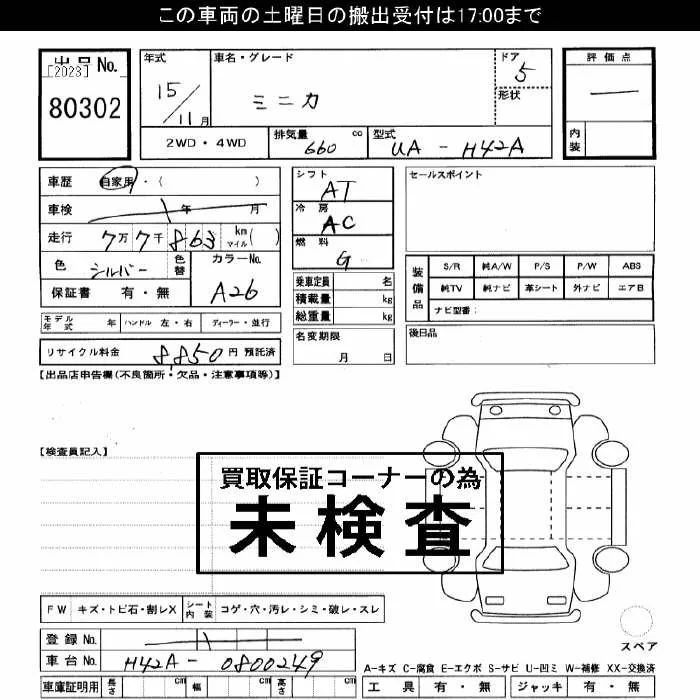 この車両の土曜日の搬出受付は17:00まで
出品 No.
[2023]
80302
年式
15/11月
車名・グレード
ミニカ
ドア
5
形状
評価点
―
内装
2WD・4WD
排気量 660 cc
型式 UA - H42A
車歴 自家用・( )
車検 年 月
走行 7万7千863 km マイル( )
色 シルバー 色替
カラーNo. A26
保証書 有・無
モデル年式 年 ハンドル 左・右 ディーラー・並行
リサイクル料金 8,850 円 預託済
シフト AT
冷房 AC
燃料 G
乗車定員 名
積載量 kg
総重量 kg
名変期限
月 日
セールスポイント
装備品
S/R 純A/W P/S P/W ABS
純TV 純ナビ 革シート 外ナビ エアB
ナビ型番:
後日品
【出品店申告欄(不良箇所・欠品・注意事項等)】
【検査員記入】
買取保証コーナーの為
未検査
FW キズ・トビ石・割レX シート内装 コゲ・穴・汚レ・シミ・破レ・スレ
登録 No.
車台 No. H42A - 0800249
車庫証明用 長さ cm 幅 cm 高さ cm
スペア
A-キズ C-腐食 E-エクボ S-サビ U-凹ミ W-補修 XX-交換済
工具 有・無 ジャッキ 有・無